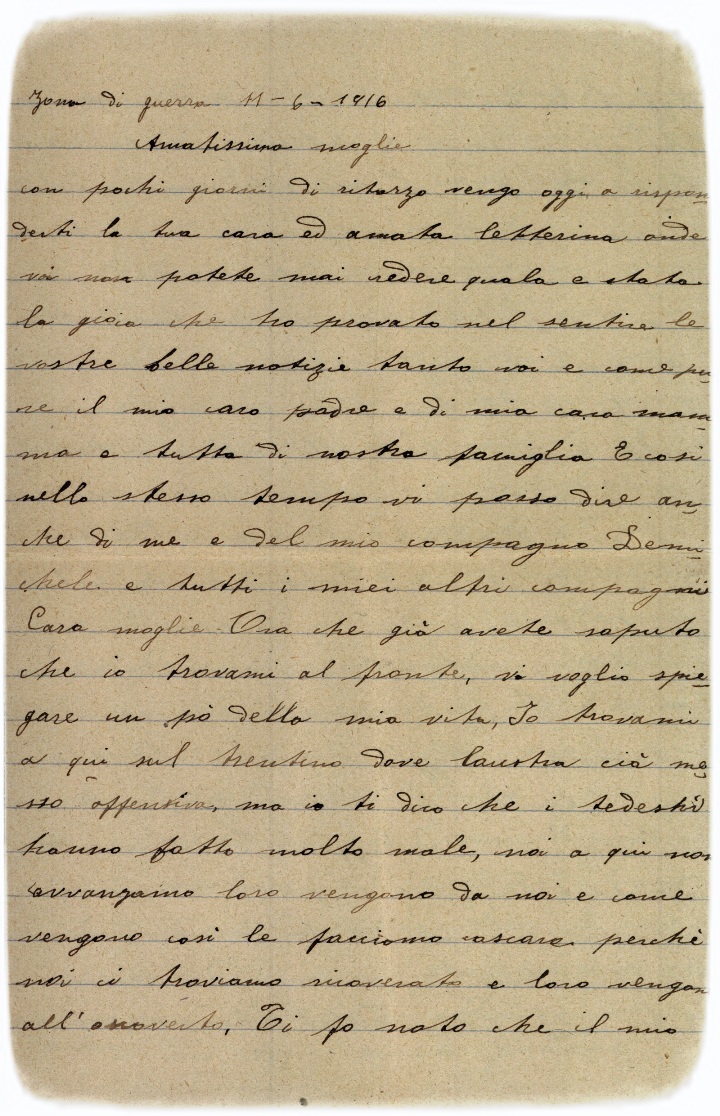 Zona di guerra 11-6-1916
Amatissima moglie
con pochi giorni di ritarzo vengo oggi a rispon=
derti la tua cara ed amata letterina onde
voi non potete mai credere quala e stata
la gioia che ho provato nel sentire le
vostre belle notizie tanto voi e come pu=
re il mio caro padre e di mia cara mam=
ma e tutta di nostra famiglia E cosi
nello stesso tempo vi posso dire an=
che di me e del mio compagno Demi=
chele e tutti i miei altri compagni
Cara moglie Ora che già avete saputo
che io trovami al fronte, vi voglio spie=
gare un pò della mia vita, Io trovami
a qui sul trentino dove laustra cià me=
sso offensiva, ma io ti dico che i tedeschi
hanno fatto molto male, noi a qui non
avvanzamo loro vengono da noi e come
vengono così le facciamo cascare perchè
noi ci troviamo ricoverato e loro vengon
all' scoverto, Ti fo noto che il mio